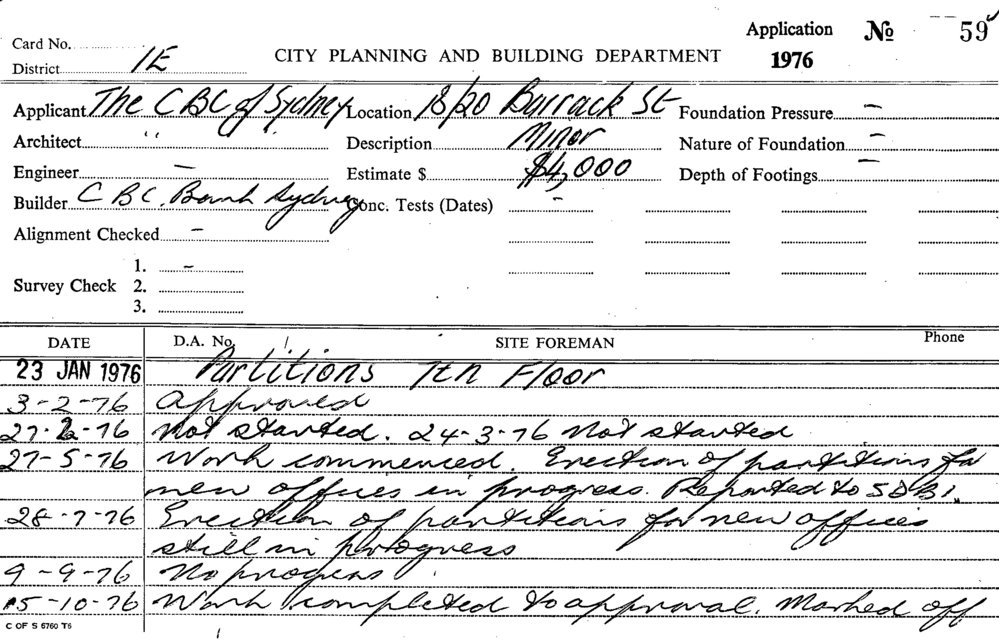 Application No 59
Card No.
District 1E
CITY PLANNING AND BUILDING DEPARTMENT
1976
Applicant The CBC of Sydney Location 18/20 Barrack St Foundation Pressure –
Architect " " Description Minor Nature of Foundation –
Engineer – Estimate $ $4,000 Depth of Footings –
Builder C B C. Bank Sydney Conc. Tests (Dates) –
Alignment Checked –
Survey Check
1. –
2.
3.
DATE D.A. No. SITE FOREMAN Phone
23 JAN 1976 Partitions 7th Floor
3-2-76 Approved
27-2-76 Not started. 24-3-76 Not started
27-5-76 Work commenced. Erection of partitions for
new offices in progress. Reported to SDBI.
28-7-76 Erection of partitions for new offices
still in progress
9-9-76 No progress
15-10-76 Work completed to approval. Marked off
C OF S 6760 T6